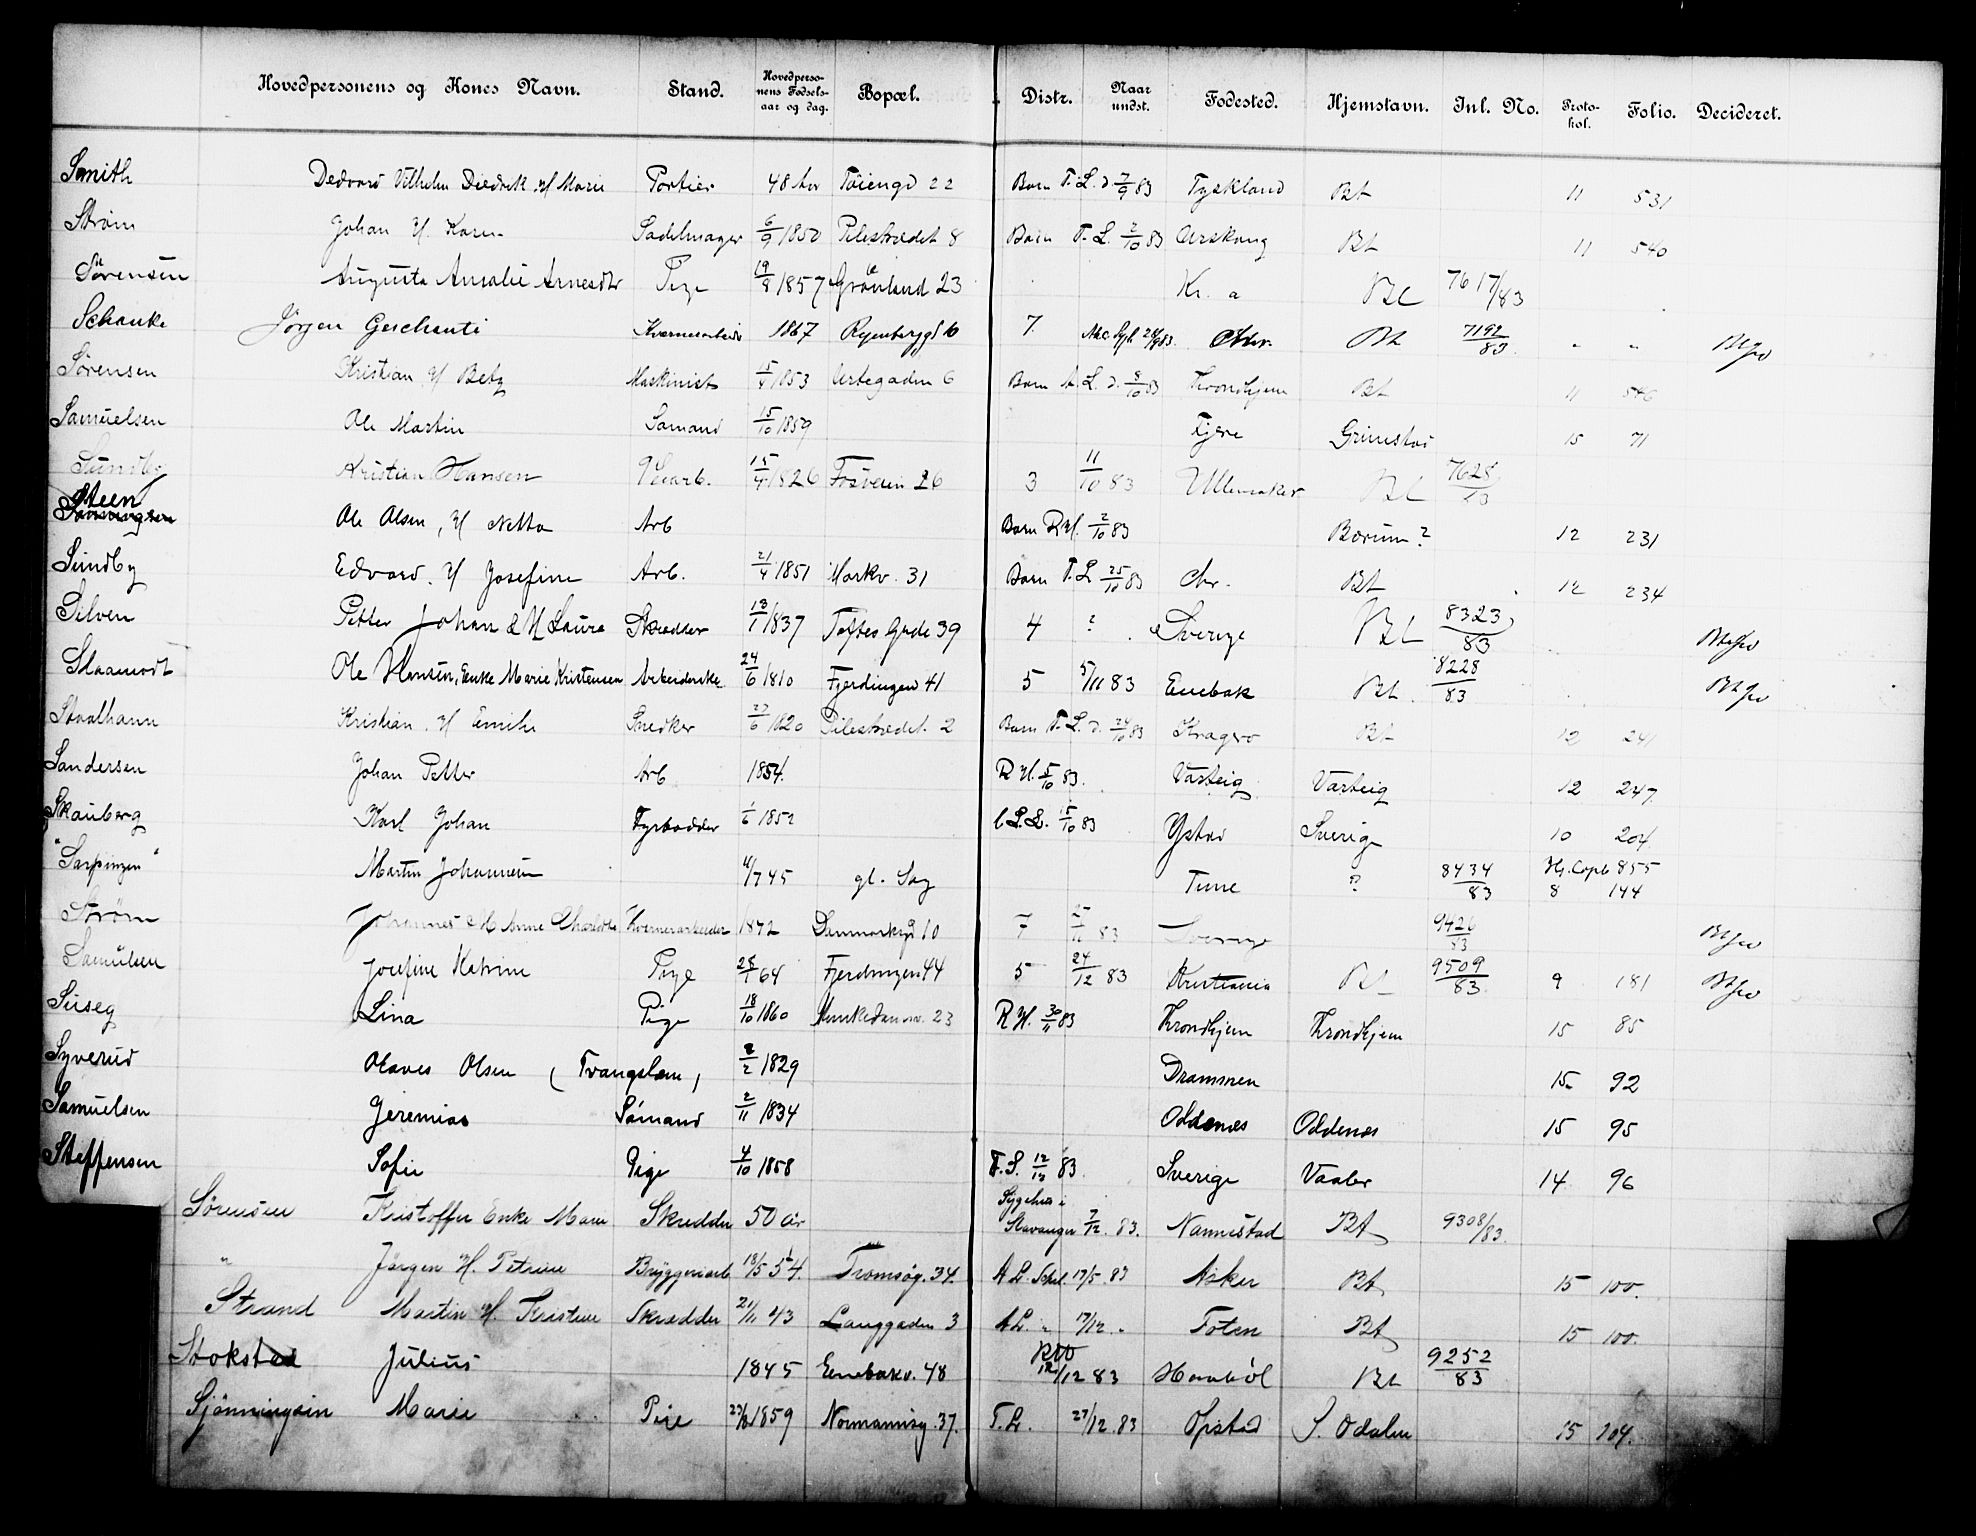 Hovedpersonens og Kones Navn. Stand. Hovedpersonens Fødselsaar og dag. Bopæl. Distr. Naar undst. Fødested. Hjemstavn. Inl. No. Protokol. Folio. Decideret.
Smith Vilhelm Diedrik H Marie Portier 48 Aar Töiengd 22 Barn F. L. d. 7/9 83 Tyskland Bt 11 531
Strøm Johan H. Karen Sadelmager 6/9 1850 Pilestrædet 8 Barn F. L. 2/10 83 Aurskoug Bt 11 540
Sørensen Augusta Amalie Arnesdtr Pige 19/8 1857 Grönland 23 Kr. a Bt 7617/83
Schanke Jørgen Kværnearbeid 1867 Ryenbergg 10 7. 83 Chr. Bt 7192/83 " "
Sørensen Kristian H Betzy Maskinist 1853 Urtegaden 6 Barn A. L. d. 8/10 83 Throndhjem Bt 11 546
Samuelsen Ole Martin Sømand 15/10 1859 Fjære Grimstad 15 71
Sundby Kristian Hansen 15/4 1826 Fossveien 26 3 11/10 83 Ullensaker Bt 7628/83
Steen
Ole Olsen, H Netta Arb Barn R.H. 2/10 83 Bærum? 12 231
Sundby Edvard. H Josefine Arb. 21/4 1851 Markv. 31 Barn F. L 25/10 83 Chr. Bt 12 234
Silven Petter Johan & H Laura Skrædder 13/1 1837 Toftes Gade 39 4 ? Sverige Bt 8323/83
Slaamodt Ole Hansen, Enke Marie Kristensen Arbeiderske 24/6 1810 Fjerdingen 41 5 5/11 83 Enebak Bt 8228/83
Staalhann Kristian. H Emilie Snedker 27/6 1820 Pilestrædet. 2 Barn F. L. d. 24/10 83 Kragerø Bt 12 241
Sandersen Johan Petter Arb 1854. R. H. 5/10 83. Varteig Varteig 12 247.
Skauberg Karl Johan Fyrbødder 1/6 1852 15/10 83 Ystad Sverige 10 204.
"Sarpingen" Martin Johannesen 4/7 45 gl. Sag Tune ? 8434/83 Hj. Copb 855
8 144
Strøm Johannes & H Anne Charlotte Kværnearbeider 1842 Danmarksgd 10 7 83 Sverige 9426/83
Samuelsen Josefine Katrine Pige 28/1 64 Fjerdingen 44 5 24/12 83 Kristiania Bt 9509/83. 9 181
Suseg Lina Pige 18/10 1860 Munkedamsv. 23 R. H. 30/11 83 Throndhjem Throndhjem 15 85
Syverud Olaves Olsen (Tvangslem) 2/2 1829 Drammen 15 92
Samuelsen Jeremias Sømand 2/11 1834 Oddenæs Oddenæs 15 95
Steffensen Sofie Pige 4/10 1858 F. S. 12/12 83. Sverige Vaaler 14 96
Sørensen Kristoffer Enke Marie Skrædder 50 år Sygehus i Stavanger 7/12. 83. Nannestad Bt 9308/83.
" Jørgen H. Petrine Bryggeriarb 18/5 54. Tromsøg. 34. A L. 17/5. 83 Asker Bt 15 100.
Strand Martin H. Kristine Skrædder 21/11 43 Langgaden 3 A L. " 17/12. " Toten Bt 15 100.
Stokstad Julius 1845 Enebakv. 48 12/12 83 Haabøl Bt 9252/83
Sjønningsen Marie Pige 1859 Normannsg. 37. F. L. 27/12. 83 Opstad S. Odalen 15 104.